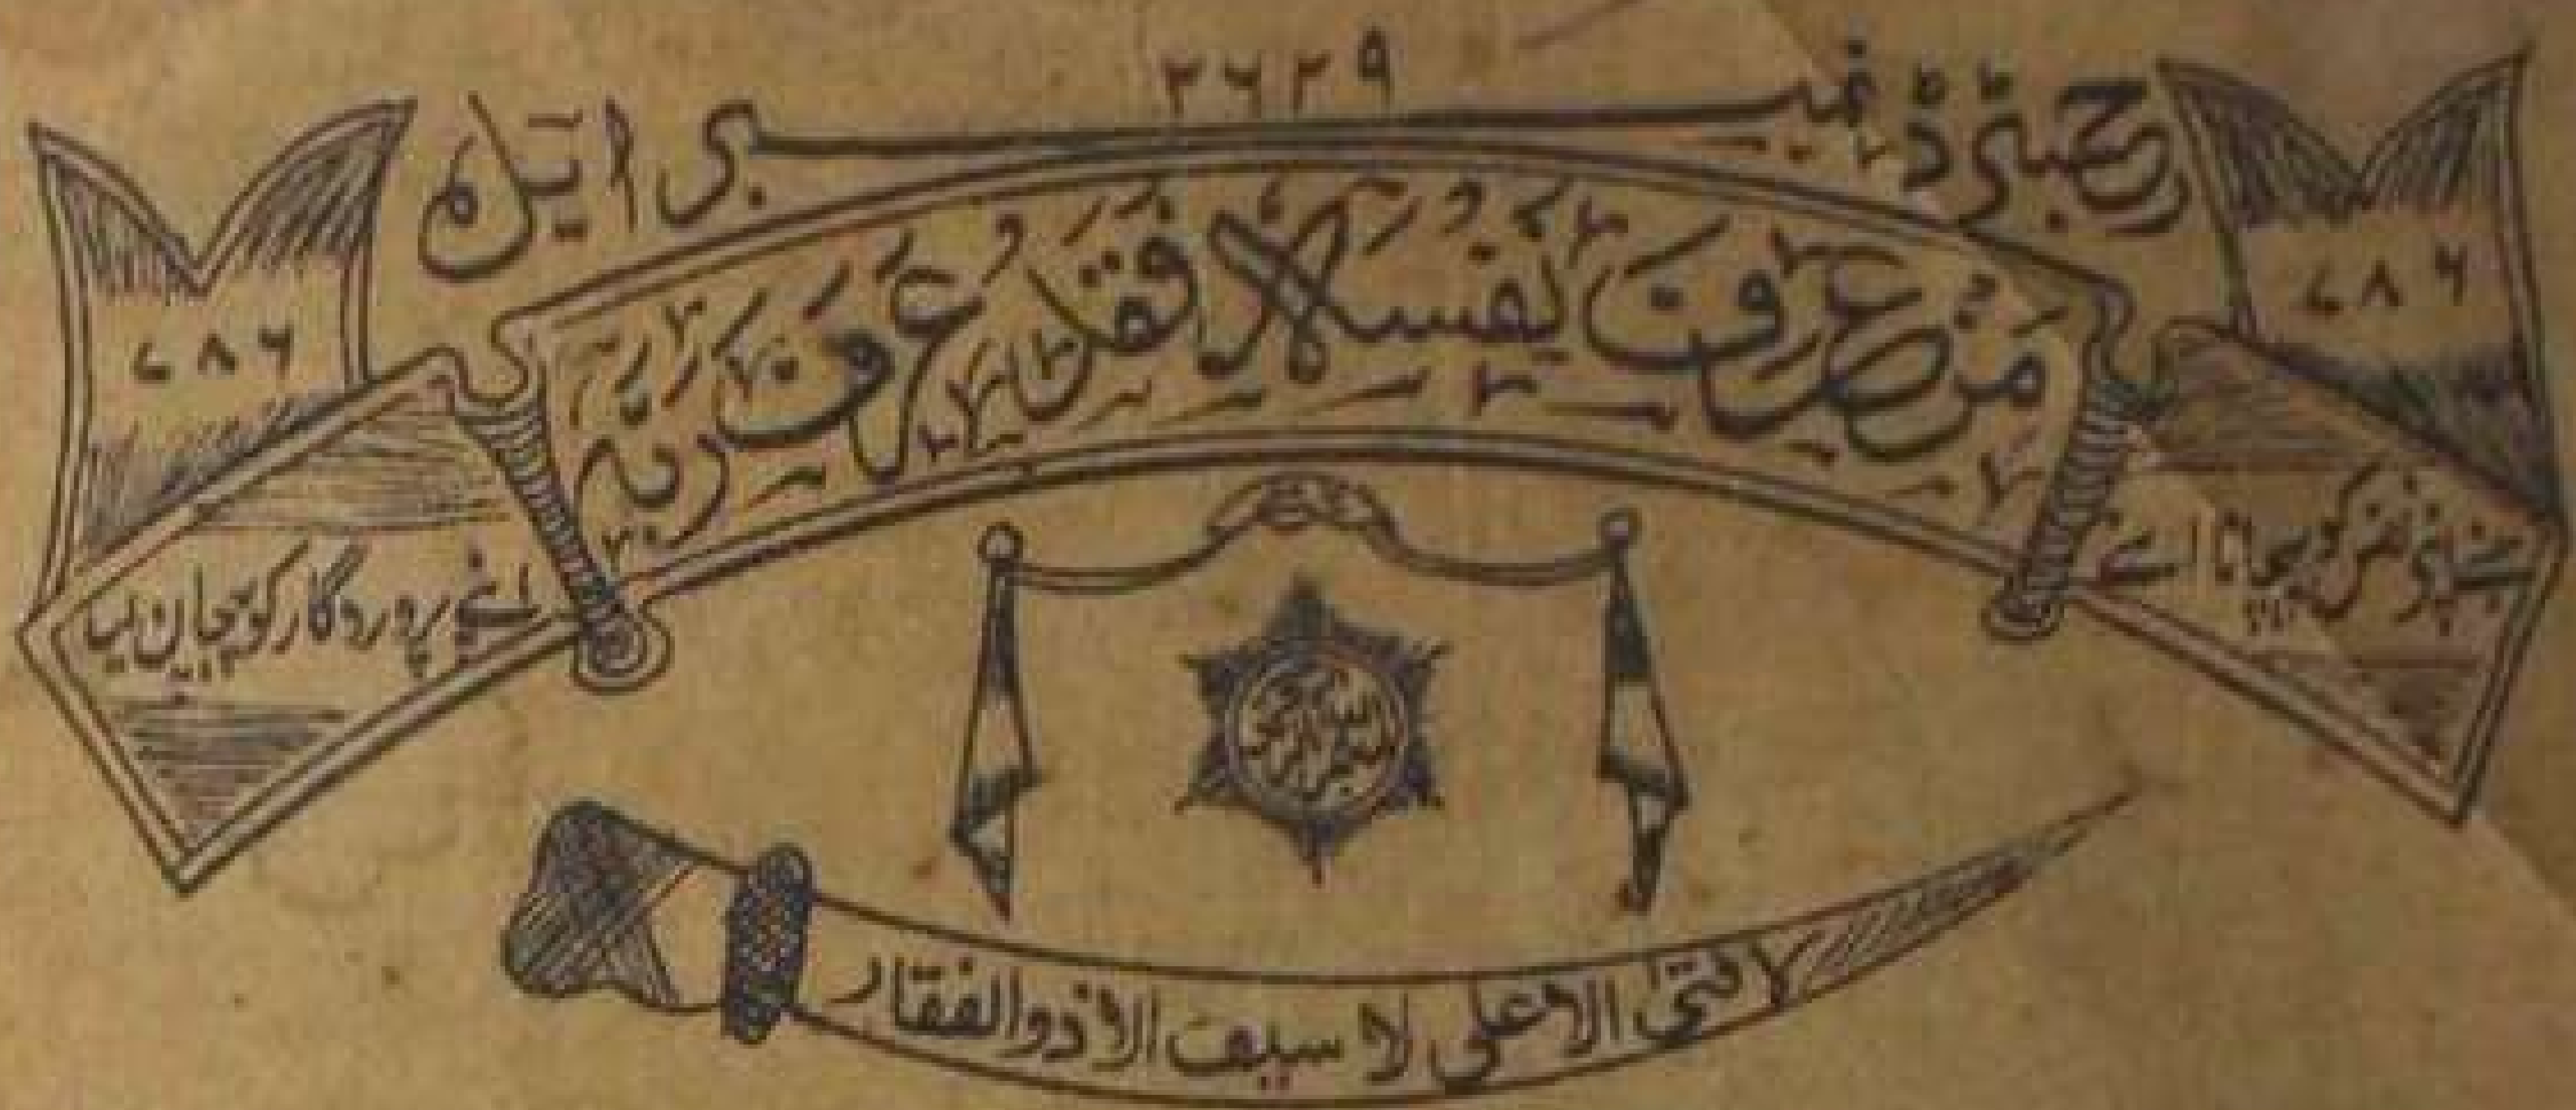 رجسٹرڈ نمبر ۲۶۲۹ بی ایل م
۷۸۶
۷۸۶
مَنْ عَرَفَ نَفْسَهُ فَقَدْ عَرَفَ رَبَّهُ
جسنے اپنے نفس کو پہچانا اسنے
اپنے پروردگار کو پہچان لیا
لا فتیٰ الا علی لا سیف الا ذوالفقار